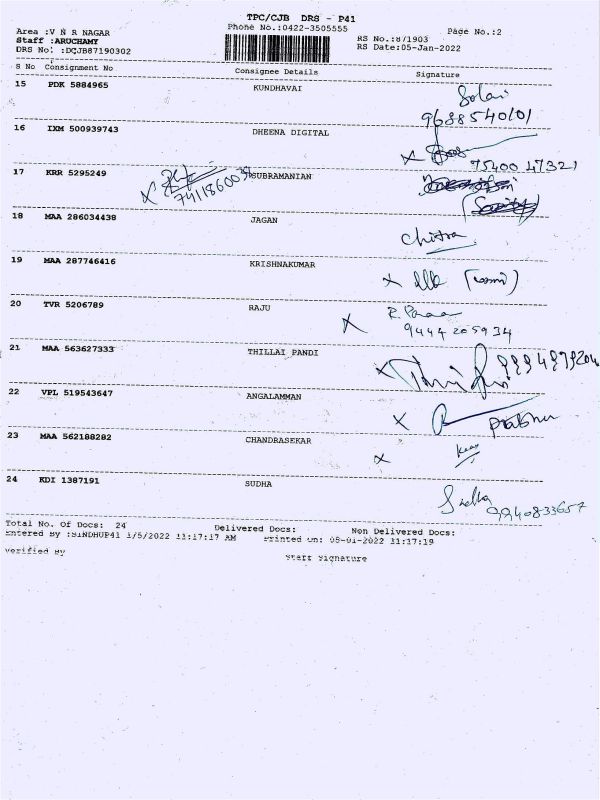 TPC/CJB DRS - P41
Phone No.:0422-3505555
Page No.:2
Area :V N R NAGAR
Staff :ARUCHAMY
DRS No: :DCJB87190302
RS No.:871903
RS Date:05-Jan-2022
S No Consignment No Consignee Details Signature
15 PDK 5884965 KUNDHAVAI
Solai
9688540101
16 IXM 500939743 DHEENA DIGITAL
75400 47321
17 KRR 5295249 SUBRAMANIAN
18 MAA 286034438 JAGAN
Chitra
19 MAA 287746416 KRISHNAKUMAR
20 TVR 5206789 RAJU
9444205934
21 MAA 563627333 THILLAI PANDI
22 VPL 519543647 ANGALAMMAN
Prabhu
23 MAA 562188282 CHANDRASEKAR
24 KDI 1387191 SUDHA
Sudha
9940833657
Total No. Of Docs: 24 Delivered Docs: Non Delivered Docs:
Entered By :SINDHUP41 1/5/2022 11:17:17 AM Printed On: 05-01-2022 11:17:19
Verified By
Staff Signature